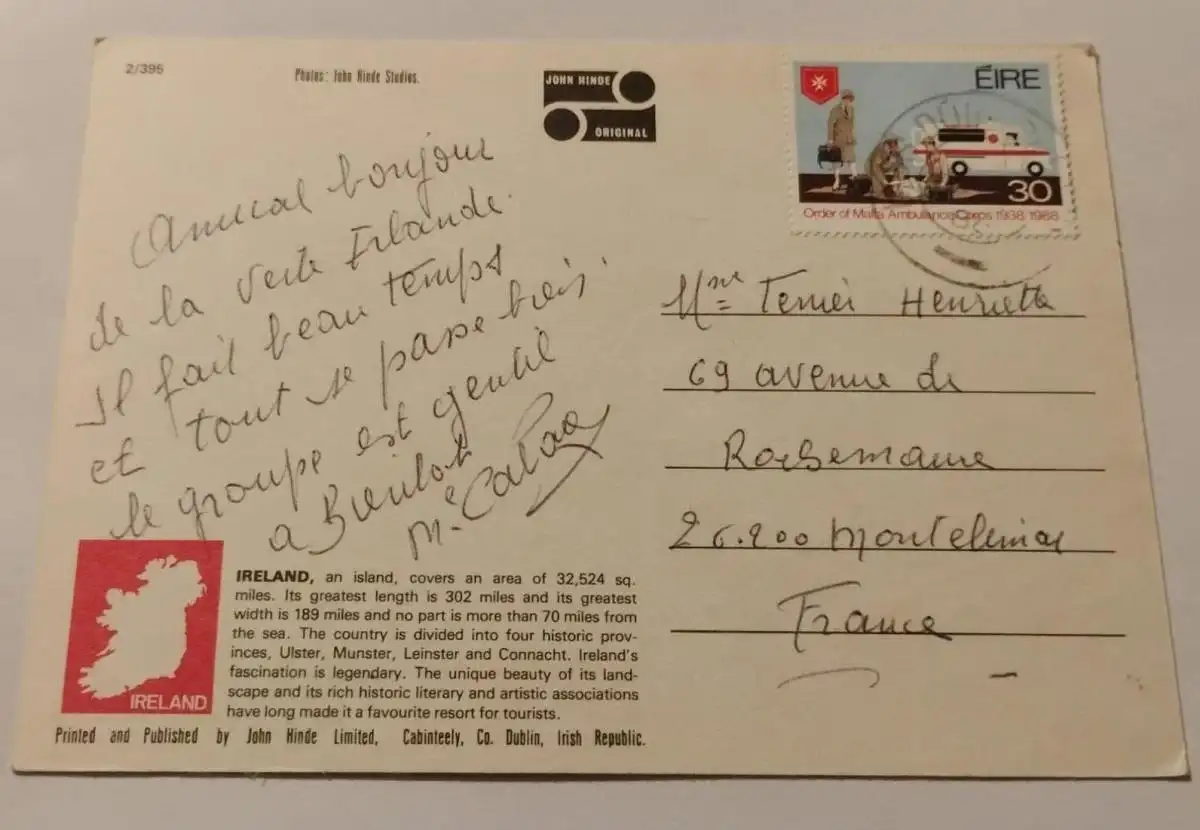 2/395
Photos: John Hinde Studios.
JOHN HINDE
ORIGINAL
ÉIRE
30
Order of Malta Ambulance Corps 1938 1988
Amical bonjour
de la verte Irlande.
Il fait beau temps
et tout se passe bien.
le groupe est gentil
a Bientot
Mme Henriette
69 avenue de
Rochemaure
26.200 Montelimar
France
IRELAND
IRELAND, an island, covers an area of 32,524 sq.
miles. Its greatest length is 302 miles and its greatest
width is 189 miles and no part is more than 70 miles from
the sea. The country is divided into four historic prov-
inces, Ulster, Munster, Leinster and Connacht. Ireland's
fascination is legendary. The unique beauty of its land-
scape and its rich historic literary and artistic associations
have long made it a favourite resort for tourists.
Printed and Published by John Hinde Limited, Cabinteely, Co. Dublin, Irish Republic.